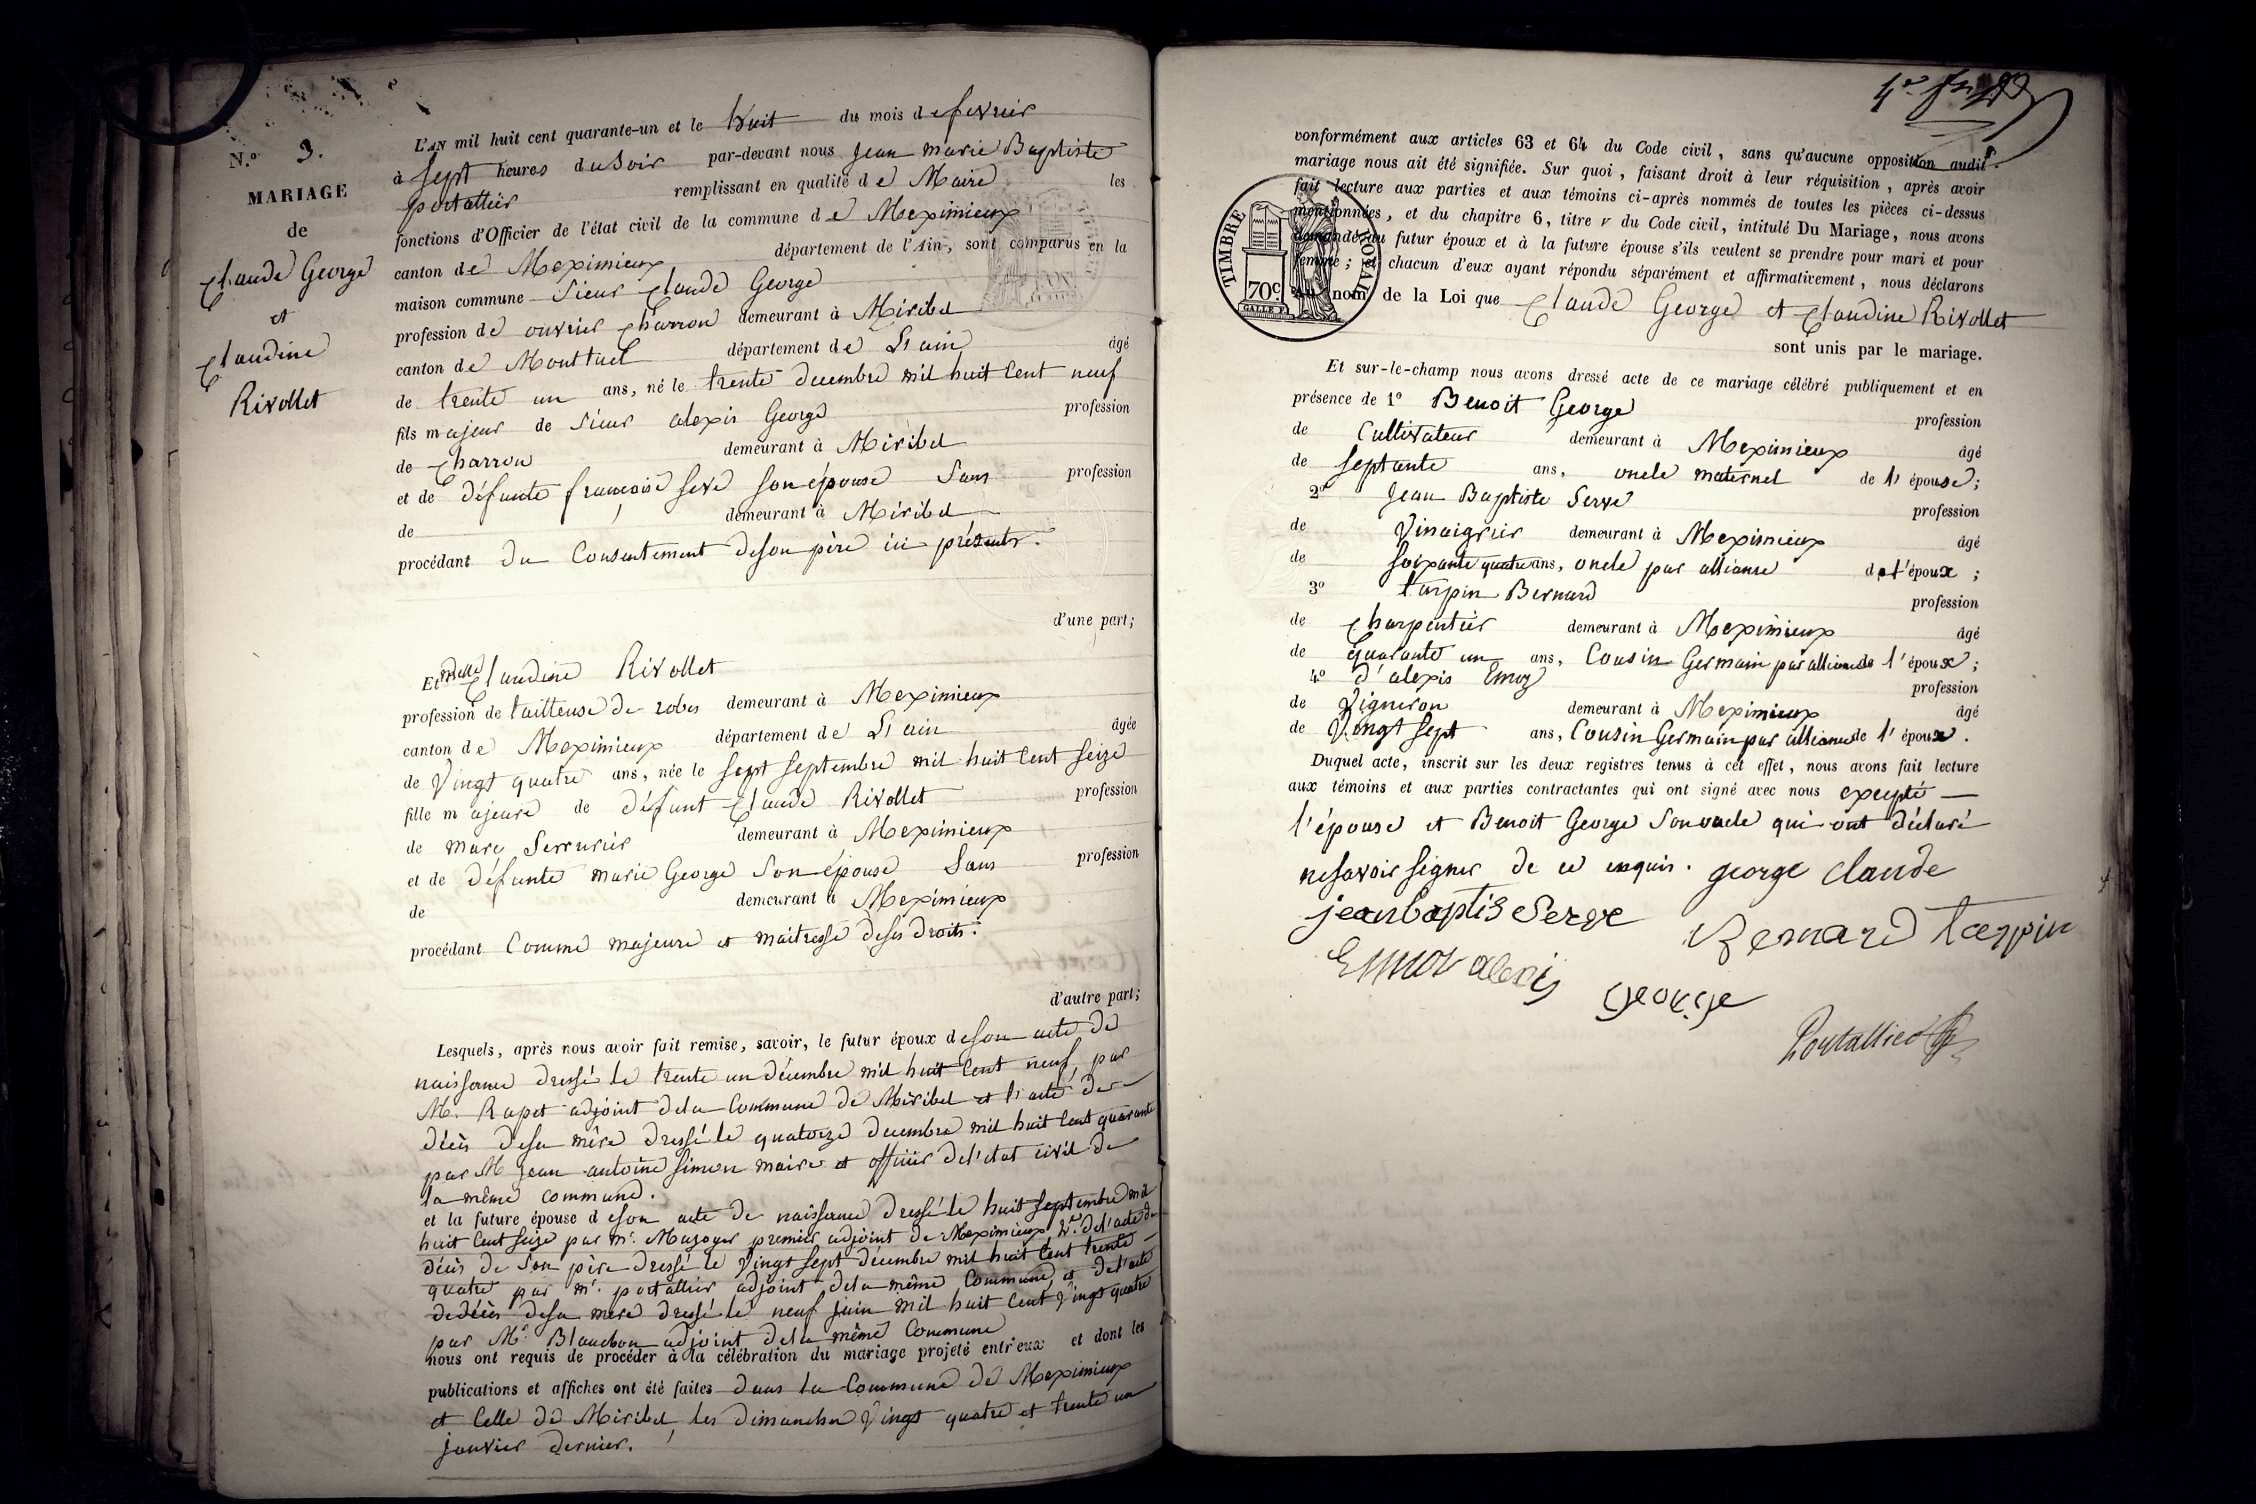 N.º 3.
MARIAGE
de
Claude George
et
Claudine
Rivollet
L'AN mil huit cent quarante-un et le huit du mois de fevrier
à sept heures du Soir par-devant nous Jean marie Baptiste
portallier remplissant en qualité de Maire les
fonctions d'Officier de l'état civil de la commune de Meximieux
canton de Meximieux département de l'Ain, sont comparus en la
maison commune Sieur Claude George
profession de ouvrier charron demeurant à Miribel
canton de Montluel département de L'ain âgé
de trente un ans, né le trente decembre mil huit Cent neuf
fils majeur de Sieur alexis George profession
de Charron demeurant à Miribel
et de défunte françoise serve son épouse Sans profession
de demeurant à Miribel
procédant du Consentement de son père ici présent.
d'une part;
Et Delle Claudine Rivollet
profession de tailleuse de robes demeurant à Meximieux
canton de Meximieux département de L'ain âgée
de Vingt quatre ans, née le sept septembre mil huit Cent seize
fille majeure de défunt Claude Rivollet profession
de marc Serrurier demeurant à Meximieux
et de défunte marie George Son épouse Sans profession
de demeurant à Meximieux
procédant Comme majeure et maitresse de ses droits.
d'autre part;
Lesquels, après nous avoir fait remise, savoir, le futur époux de son acte de
naissance dressé le trente un décembre mil huit Cent neuf, par
M. Rapet adjoint de la Commune de Miribel et l'acte de
décès de sa mère dressé le quatorze decembre mil huit Cent quarante
par M Jean antoine simon maire et officier de l'etat civil de
la même commune.
et la future épouse de son acte de naissance dressé le huit septembre mil
huit Cent seize par mr. Mazoyer premier adjoint de Meximieux, 2º. de l'acte de
décès de Son père dressé le Vingt sept décembre mil huit Cent trente
quatre par mr. portallier adjoint de la même Commune, et de l'acte
de décès de sa mere dressé le neuf juin mil huit Cent Vingt quatre
par Mr. Blanchon adjoint de la même Commune
nous ont requis de procéder à la célébration du mariage projeté entr'eux et dont les
publications et affiches ont été faites dans la Commune de Meximieux
et Celle de Miribel, les dimanches Vingt quatre et trente un
janvier dernier.
conformément aux articles 63 et 64 du Code civil, sans qu'aucune opposition audit
mariage nous ait été signifiée. Sur quoi, faisant droit à leur réquisition, après avoir
fait lecture aux parties et aux témoins ci-après nommés de toutes les pièces ci-dessus
mentionnées, et du chapitre 6, titre v du Code civil, intitulé Du Mariage, nous avons
demandé au futur époux et à la future épouse s'ils veulent se prendre pour mari et pour
femme; et chacun d'eux ayant répondu séparément et affirmativement, nous déclarons
au nom de la Loi que Claude George et Claudine Rivollet
sont unis par le mariage.
TIMBRE ROYAL
70c.
Et sur-le-champ nous avons dressé acte de ce mariage célébré publiquement et en
présence de 1º Benoit George profession
de Cultivateur demeurant à Meximieux âgé
de septante ans, oncle maternel de l'épouse;
2º Jean Baptiste Serve profession
de Vinaigrier demeurant à Meximieux âgé
de soixante quatre ans, oncle par alliance de l'époux;
3º tarpin Bernard profession
de Charpentier demeurant à Meximieux âgé
de quarante un ans, Cousin Germain par alliance de l'époux;
4º d'alexis Emoz profession
de Vigneron demeurant à Meximieux âgé
de Vingt sept ans, Cousin Germain par alliance de l'époux.
Duquel acte, inscrit sur les deux registres tenus à cet effet, nous avons fait lecture
aux témoins et aux parties contractantes qui ont signé avec nous excepté
l'épouse et Benoit George Son oncle qui ont déclaré
ne savoir signer de ce enquis. george claude
jeanbaptis Serve Bernard tarpin
alexis
George
Portallier